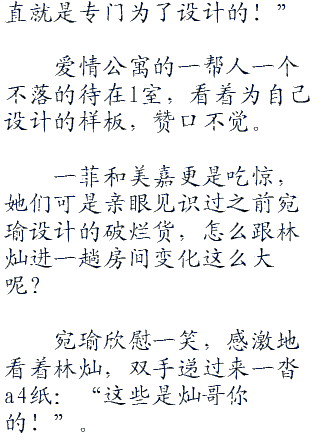 直就是专门为了设计的！”
爱情公寓的一帮人一个
不落的待在1室，看着为自己
设计的样板，赞口不觉。
一菲和美嘉更是吃惊，
她们可是亲眼见识过之前宛
瑜设计的破烂货，怎么跟林
灿进一趟房间变化这么大
呢？
宛瑜欣慰一笑，感激地
看着林灿，双手递过来一沓
a4纸：“这些是灿哥你
的！”。